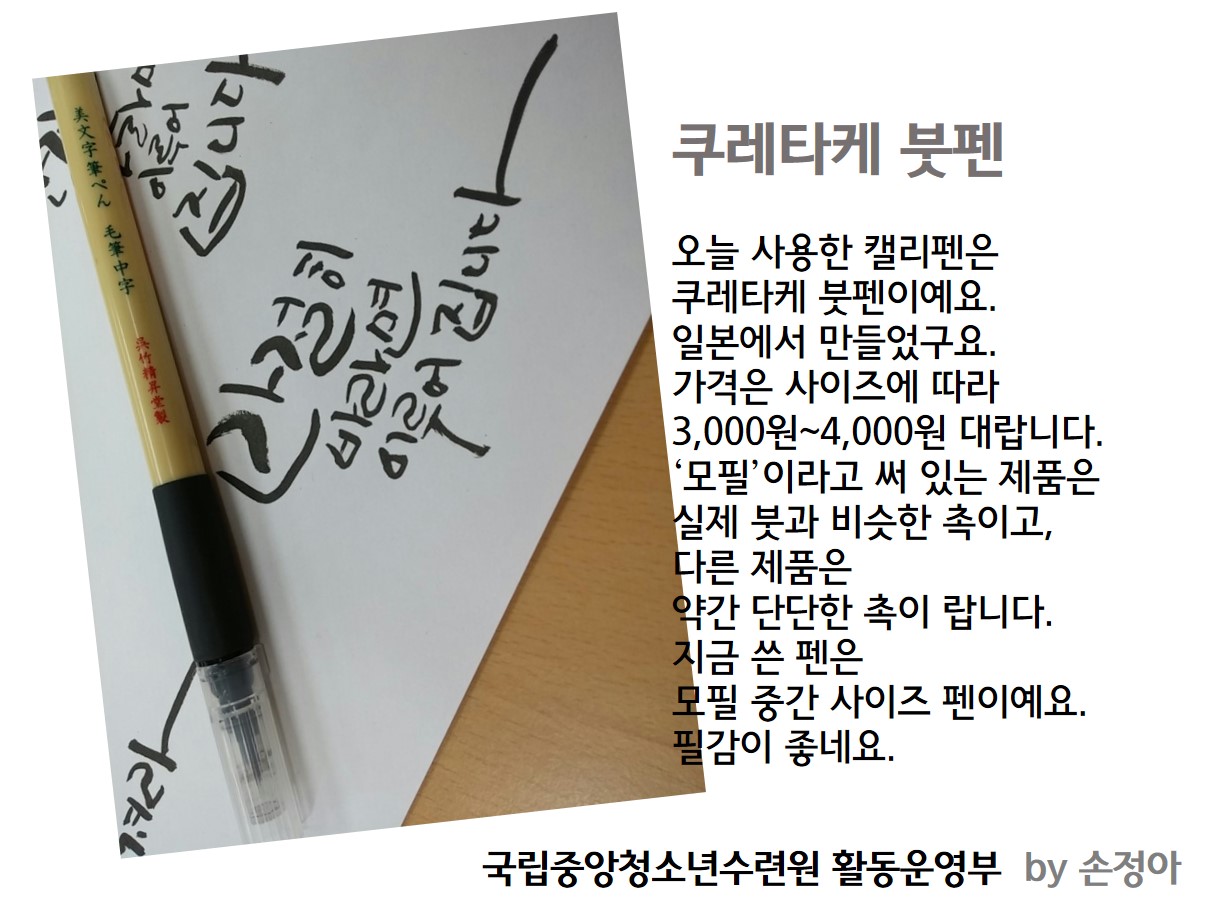 美文字筆ぺん 毛筆中字
呉竹精昇堂製
간절히
바라면
이루어 집니다
쿠레타케 붓펜
오늘 사용한 캘리펜은
쿠레타케 붓펜이예요.
일본에서 만들었구요.
가격은 사이즈에 따라
3,000원~4,000원 대랍니다.
‘모필’이라고 써 있는 제품은
실제 붓과 비슷한 촉이고,
다른 제품은
약간 단단한 촉이 랍니다.
지금 쓴 펜은
모필 중간 사이즈 펜이예요.
필감이 좋네요.
국립중앙청소년수련원 활동운영부 by 손정아